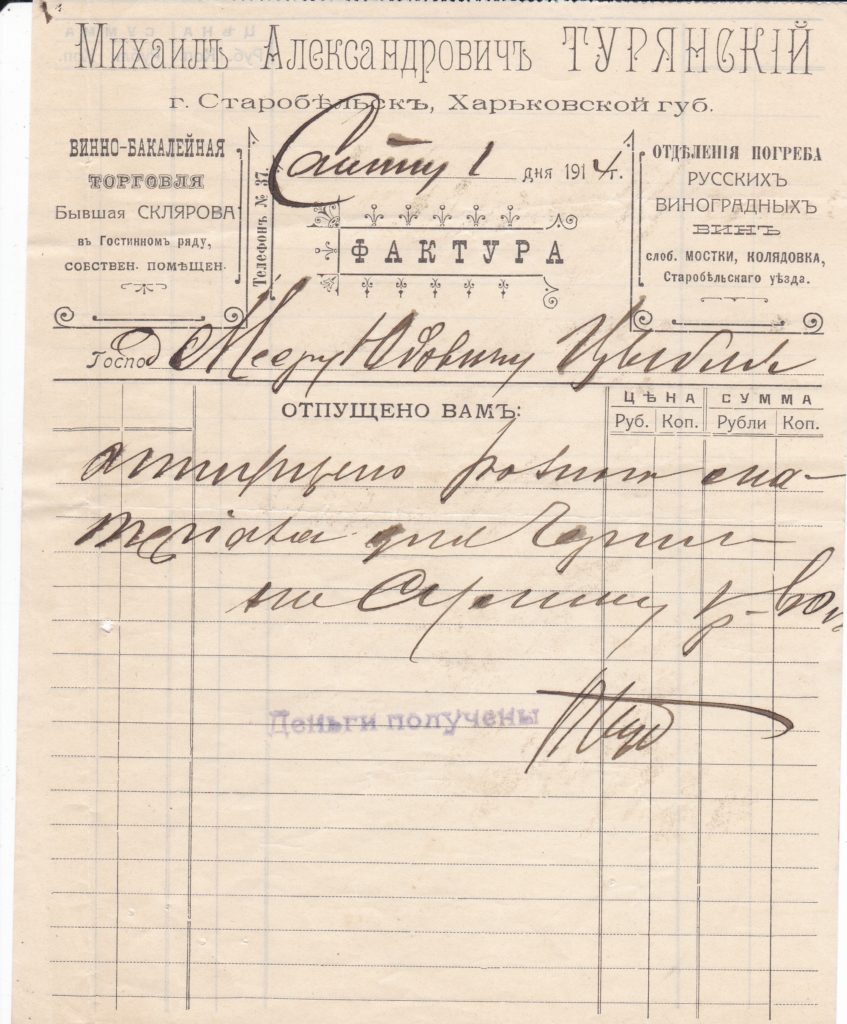 Михаилъ Александровичъ ТУРЯНСКІЙ
г. Старобѣльскъ, Харьковской губ.
ВИННО-БАКАЛЕЙНАЯ
ТОРГОВЛЯ
Бывшая СКЛЯРОВА
въ Гостинномъ ряду,
СОБСТВЕН. ПОМѢЩЕН.
Телефонъ № 37.
1 дня 1914 г.
ФАКТУРА
ОТДѢЛЕНІЯ ПОГРЕБА
РУССКИХЪ
ВИНОГРАДНЫХЪ
ВИНЪ
слоб. МОСТКИ, КОЛЯДОВКА,
Старобѣльскаго уѣзда.
Господ Мееру Юдовичу
ОТПУЩЕНО ВАМЪ:
ЦѢНА СУММА
Руб. Коп. Рубли Коп.
отпущено разного ма-
теріала для
на Сумму
Деньги получены